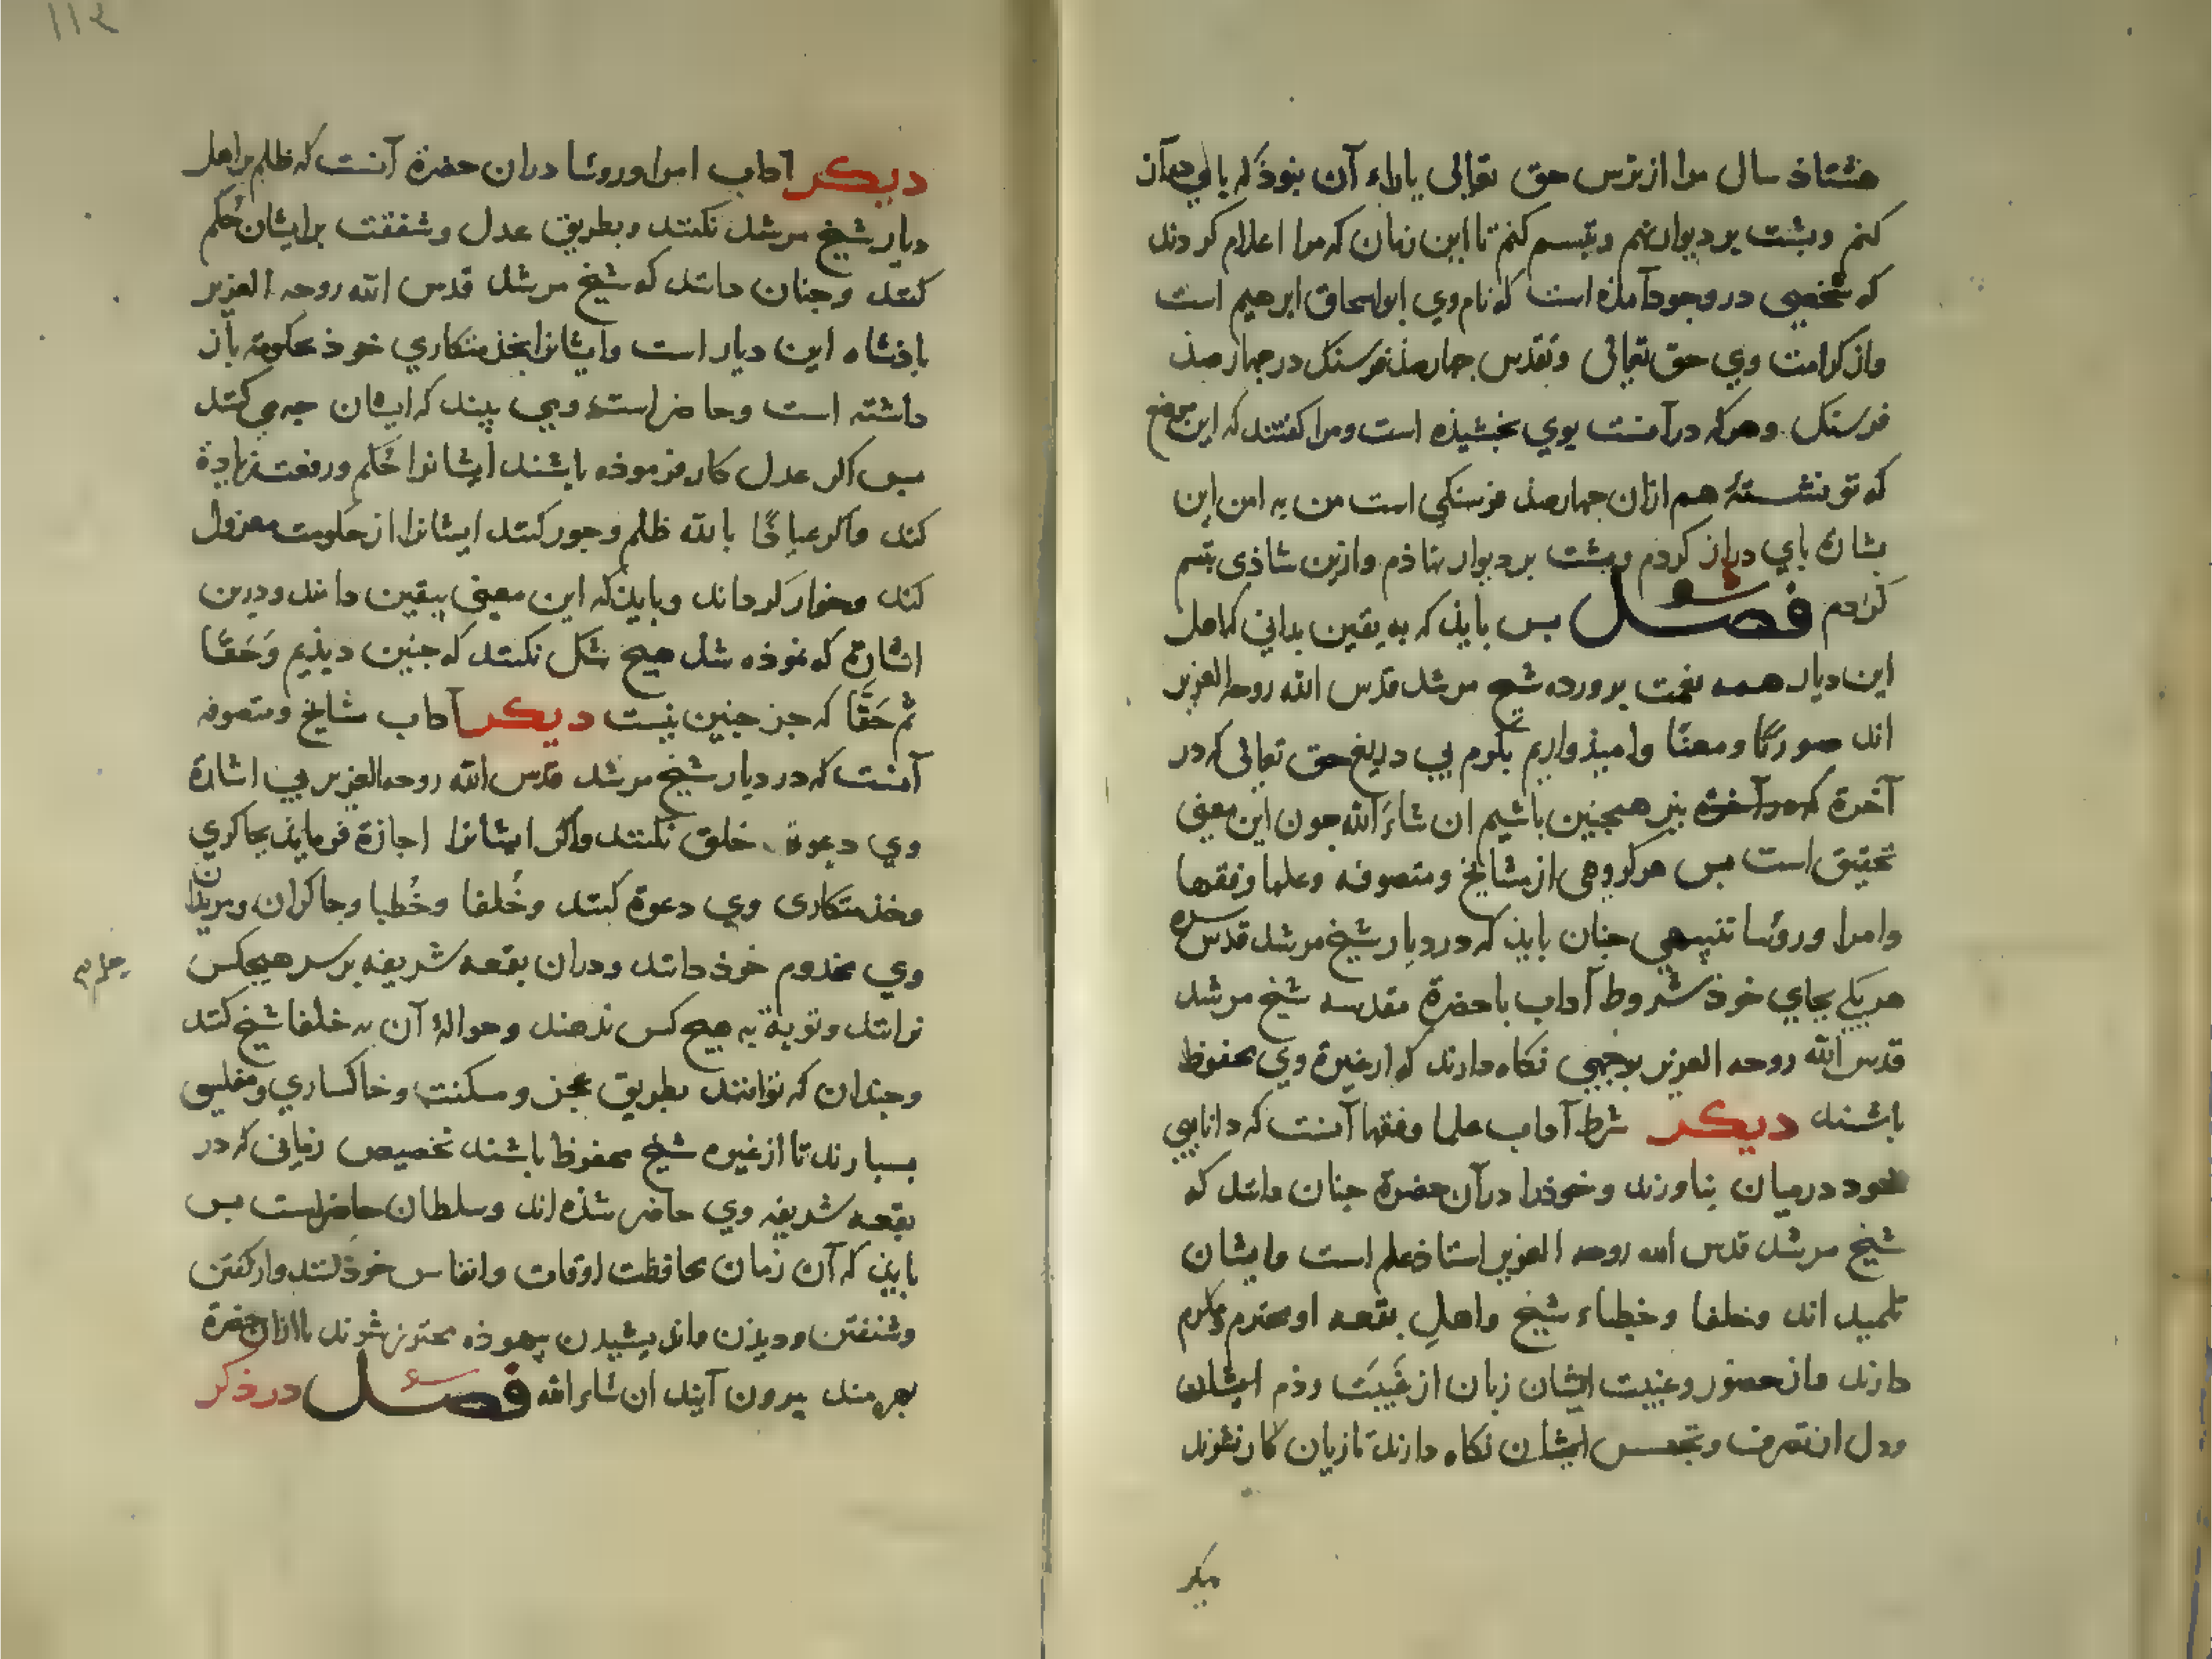 هشتاذ سال مرا از ترس حق تعالی یاراء آن نبوذ که پای دراز
کنم وپشت بر دیوار نهم وتبسم کنم تا این زمان که مرا اعلام کردند
که شخصی در وجود آمذه است که نام وی ابواسحاق ابرهیم است
واز کرامت وي حق تعالی وتقدس جهارصذ فرسنک در جهارصذ
فرسنک وهرکه در آنست بوي بخشیذه است ومرا کفتند که این موضع
که تو نشستهٔ هم ازان جهارصذ فرسنکی است من به امن این
بشارة باي دراز کردم وپشت بر دیوار نهاذم وازین شاذی تبسم
کردم فصل بس بایذ که به یقین بدانی که اهل
این دیار همه نعمت برورده شیخ مرشد قدس الله روحه العزیز
اند صورتًا ومعنًا وامیذواریم بکرم بی دریغ حق تعالی که در
آخرة نیز همجنین باشیم ان شاء الله جون این معنی
تحقیق است بس هر کروهی از مشایخ ومتصوفه وعلما وفقها
وامرا ورؤسا تنبیهی جنان بایذ که در دیار شیخ مرشد قدس سره
هر یکی بجای خوذ شروط آداب با حضرة مقدسه شیخ مرشد
قدس الله روحه العزیز بوجهی نکاه دارند که از غیرة وی محفوظ
باشند دیکر شرط آداب علما وفقها آنست که دانایی
خود درمیان نیاورند وخوذرا در آن حضرة جنان دانند که
شیخ مرشد قدس الله روحه العزیز استاذ علم است وایشان
تلمید اند وخلفا وخطباء شیخ واهل بقعه او محترم ومکرم
دارند واز حضور وغیبت ایشان زبان از غیبت وذم ایشان
ودل از تصرف وتجسس ایشان نکاه دارند تا زیان کار نشوند
دیکر
دیکر آداب امرا وروسا دران حضرة آنست که ظلم بر اهل
دیار شیخ مرشد نکنند وبطریق عدل وشفقت بر ایشان حکم
کنند وجنان دانند که شیخ مرشد قدس الله روحه العزیز
باذشاه این دیار است وایشانرا بخذمتکاري خوذ بحکومة باز
داشته است وحاضر است ومی بیند که ایشان جه می کنند
بس اکر عدل کار فرموذه باشند ایشانرا حکم ورفعت زیادة
کند واکر عیاذًا بالله ظلم وجور کنند ایشانرا از حکومت معزول
کند وخوار کرداند وبایذ که این معنی بیقین دانند ودرین
اشارة که نموذه شد هیج شک نکنند که جنین دیذیم وَحَقًا
ثم حَقًا که جز جنین نیست دیکر آداب مشایخ ومتصوفه
آنست که در دیار شیخ مرشد قدس الله روحه العزیز بی اشارة
وي دعوة خلق نکنند واکر ایشانرا اجازة فرمایذ بجاکري
وخذمتکاری وي دعوة کنند وخُلفا وخُطبا وجاکران ومریذان
وي مخدوم خوذ دانند ودران بقعه شریفه بر سر هیجکس
نرانند وتوبة به هیج کس ندهند وحوالهٔ آن به خلفا شیخ کنند
وجندان که توانند بطریق عجز ومسکنت وخاکساري ومفلسی
بسبارند تا از غیره شیخ محفوظ باشند تخصیص زمانی که در
بقعه شریفه وي حاضر شذه اند وسلطان حاضر است بس
بایذ که آن زمان محافظت اوقات وانفاس خوذ کنند واز کفتن
وشنفتن ودیذن واندیشیدن بیهوذه محترز شوند تا ازان حضرة
بهره مند بیرون آیند ان شاء الله فصل در ذکر